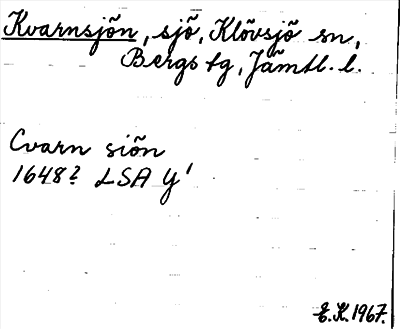 Kvarnsjön, sjö, Klövsjö sn,
Bergs tg, Jämtl. l.
Cvarn siön
1648? LSA Y'
E.K. 1967.